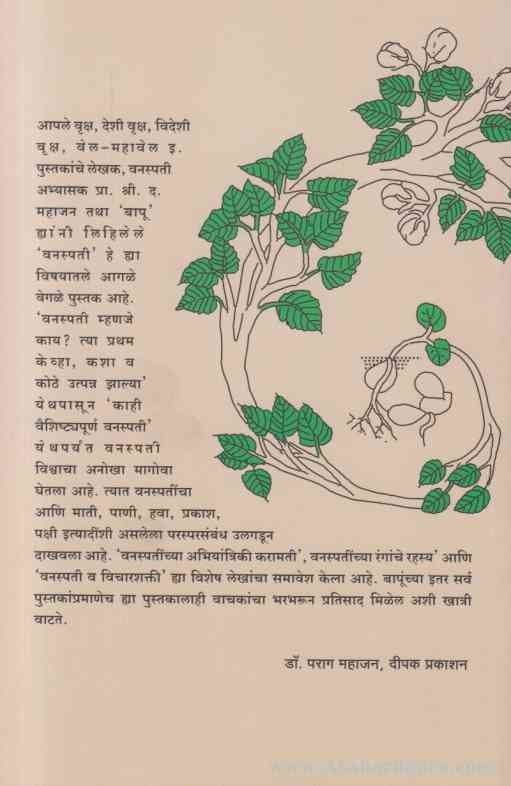 आपले वृक्ष, देशी वृक्ष, विदेशी
वृक्ष, वेल-महावेल इ.
पुस्तकांचे लेखक, वनस्पती
अभ्यासक प्रा. श्री. द.
महाजन तथा ‘बापू’
ह्यांनी लिहिलेले
‘वनस्पती’ हे ह्या
विषयातले आगळे
वेगळे पुस्तक आहे.
‘वनस्पती म्हणजे
काय? त्या प्रथम
केव्हा, कशा व
कोठे उत्पन्न झाल्या’
येथपासून ‘काही
वैशिष्ट्यपूर्ण वनस्पती’
येथपर्यंत वनस्पती
विश्वाचा अनोखा मागोवा
घेतला आहे. त्यात वनस्पतींचा
आणि माती, पाणी, हवा, प्रकाश,
पक्षी इत्यादींशी असलेला परस्परसंबंध उलगडून
दाखवला आहे. ‘वनस्पतींच्या अभियांत्रिकी करामती’, वनस्पतींच्या रंगांचे रहस्य’ आणि
‘वनस्पती व विचारशक्ती’ ह्या विशेष लेखांचा समावेश केला आहे. बापूंच्या इतर सर्व
पुस्तकांप्रमाणेच ह्या पुस्तकालाही वाचकांचा भरभरून प्रतिसाद मिळेल अशी खात्री
वाटते.
डॉ. पराग महाजन, दीपक प्रकाशन